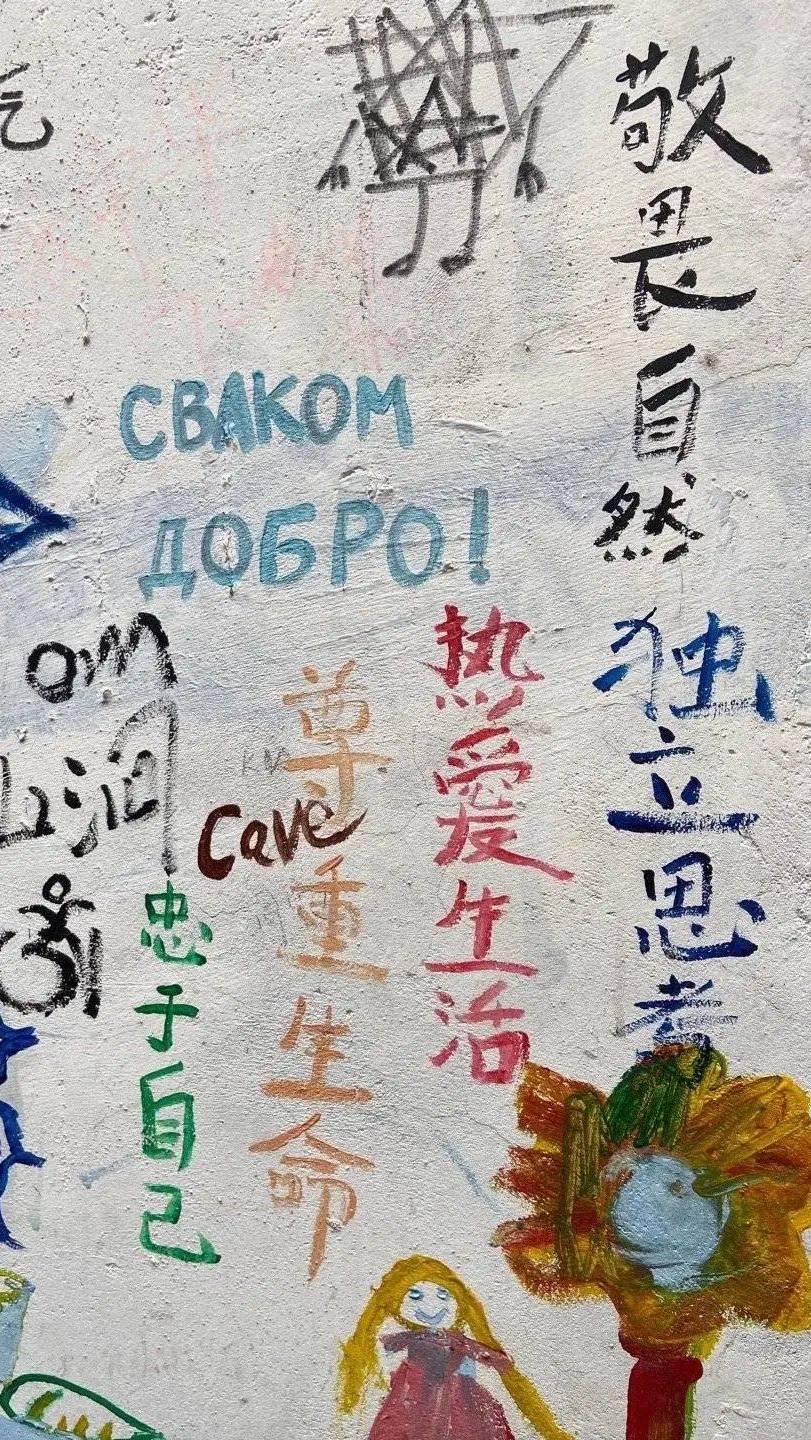 敬畏自然
独立思考
СВАКОМ
ДОБРО!
热愛生活
尊重生命
Cave
忠于自己
om
山洞